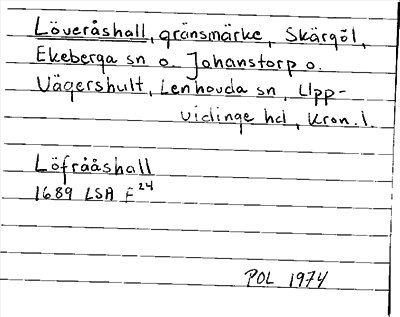 Löveråshall, gränsmärke, Skärgöl,
Ekeberga sn o. Johanstorp o.
Vägershult, Lenhovda sn, Upp-
vidinge hd, Kron. l.
Löfrååshall
1689 LSA F 24
POL 1974